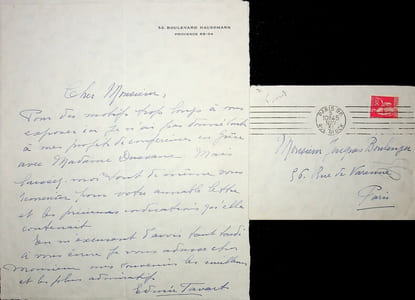 52. BOULEVARD HAUSSMANN
PROVENCE 88-04
Cher Monsieur,
Pour des motifs trop longs à vous
exposer ici je n'ai pas donné suite
à mes projets de conférences en Grèce
avec Madame Dussane. Mais
laissez-moi tout de même vous
remercier pour votre aimable lettre
et les précieuses indications qu'elle
contenait.
En m'excusant d'avoir tant tardé
à vous écrire je vous adresse cher
Monsieur mes souvenirs les meilleurs
et les plus admiratifs.
PARIS
Monsieur Jacques Boulenger
56. Rue de Varenne
Paris